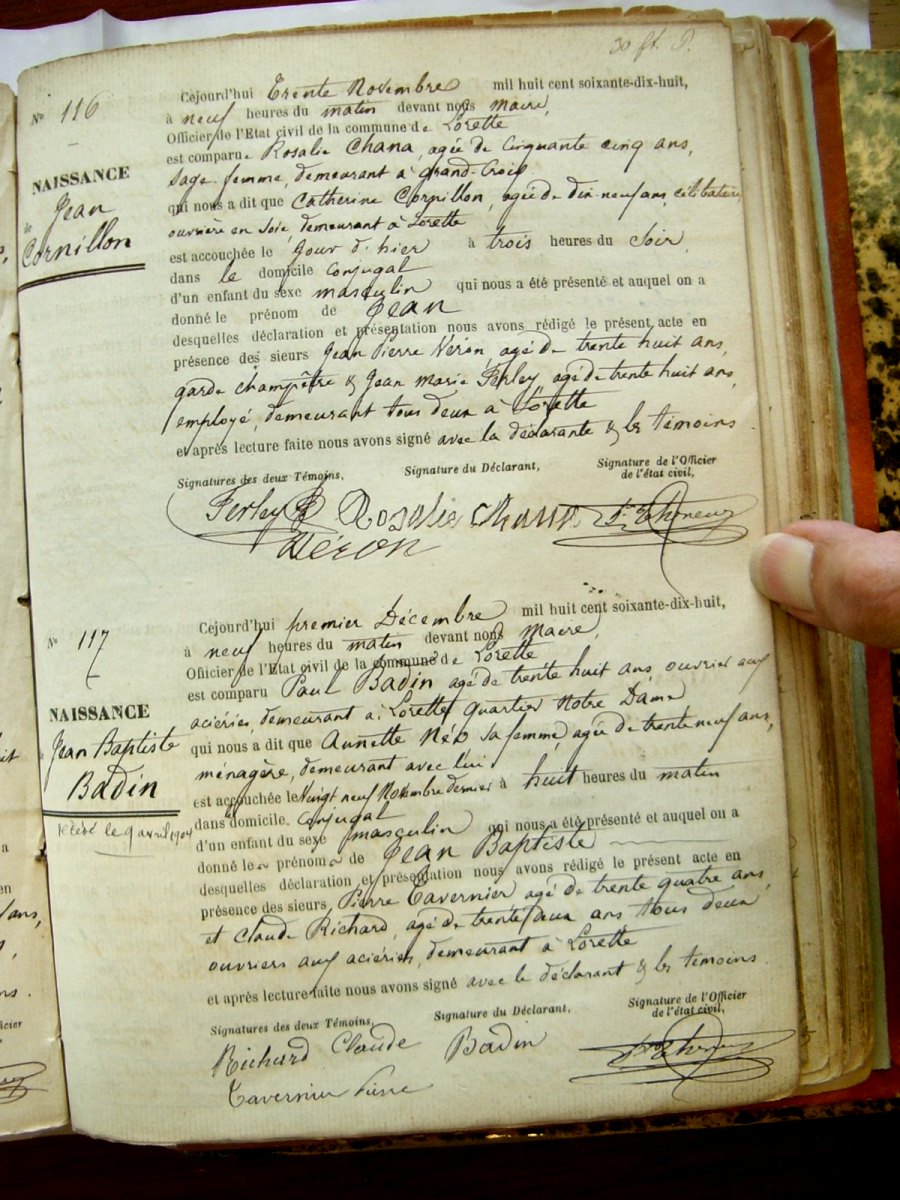 30 ft. P.
N° 116
NAISSANCE
de
Jean
Cornillon
Cejourd'hui Trente Novembre mil huit cent soixante-dix-huit,
à neuf heures du matin devant nous Maire,
Officier de l'Etat civil de la commune de Lorette
est comparue Rosalie Chana, agée de Cinquante cinq ans,
Sage-femme, demeurant à Grand-Croix
qui nous a dit que Catherine Cornillon, agée de dix-neuf ans, célibataire,
ouvrière en Soie, demeurant à Lorette
est accouchée le jour d'hier à trois heures du Soir,
dans le domicile conjugal
d'un enfant du sexe masculin qui nous a été présenté et auquel on a
donné le prénom de Jean
desquelles déclaration et présentation nous avons rédigé le présent acte en
présence des sieurs Jean Pierre Néron, agé de trente huit ans,
garde champêtre & Jean Marie Ferley, agé de trente huit ans,
employé, demeurant tous deux à Lorette
et après lecture faite nous avons signé avec la déclarante & les témoins.
Signatures des deux Témoins, Signature du Déclarant, Signature de l'Officier
de l'état civil,
Ferley Rosalie Chana
Néron
N° 117
NAISSANCE
de
Jean Baptiste
Badin
décédé le 9 avril 1904
Cejourd'hui premier Décembre mil huit cent soixante-dix-huit,
à neuf heures du matin devant nous Maire,
Officier de l'Etat civil de la commune de Lorette
est comparu Paul Badin agé de trente huit ans, ouvrier aux
aciéries, demeurant à Lorette quartier Notre Dame
qui nous a dit que Annette Néo sa femme, agée de trente neuf ans,
ménagère, demeurant avec lui
est accouchée le Vingt neuf Novembre dernier à huit heures du matin
dans domicile. conjugal
d'un enfant du sexe masculin qui nous a été présenté et auquel on a
donné le prénom de Jean Baptiste
desquelles déclaration et présentation nous avons rédigé le présent acte en
présence des sieurs, Pierre Tavernier agé de trente quatre ans,
et Claude Richard, agé de trente deux ans tous deux
ouvriers aux aciéries, demeurant à Lorette
et après lecture faite nous avons signé avec le déclarant & les témoins.
Signatures des deux Témoins, Signature du Déclarant, Signature de l'Officier
de l'état civil,
Richard Claude Badin
Tavernier Pierre